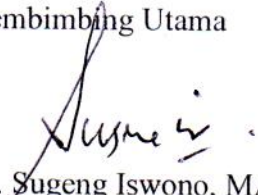 embimbing Utama
. Sugeng Iswono, MA